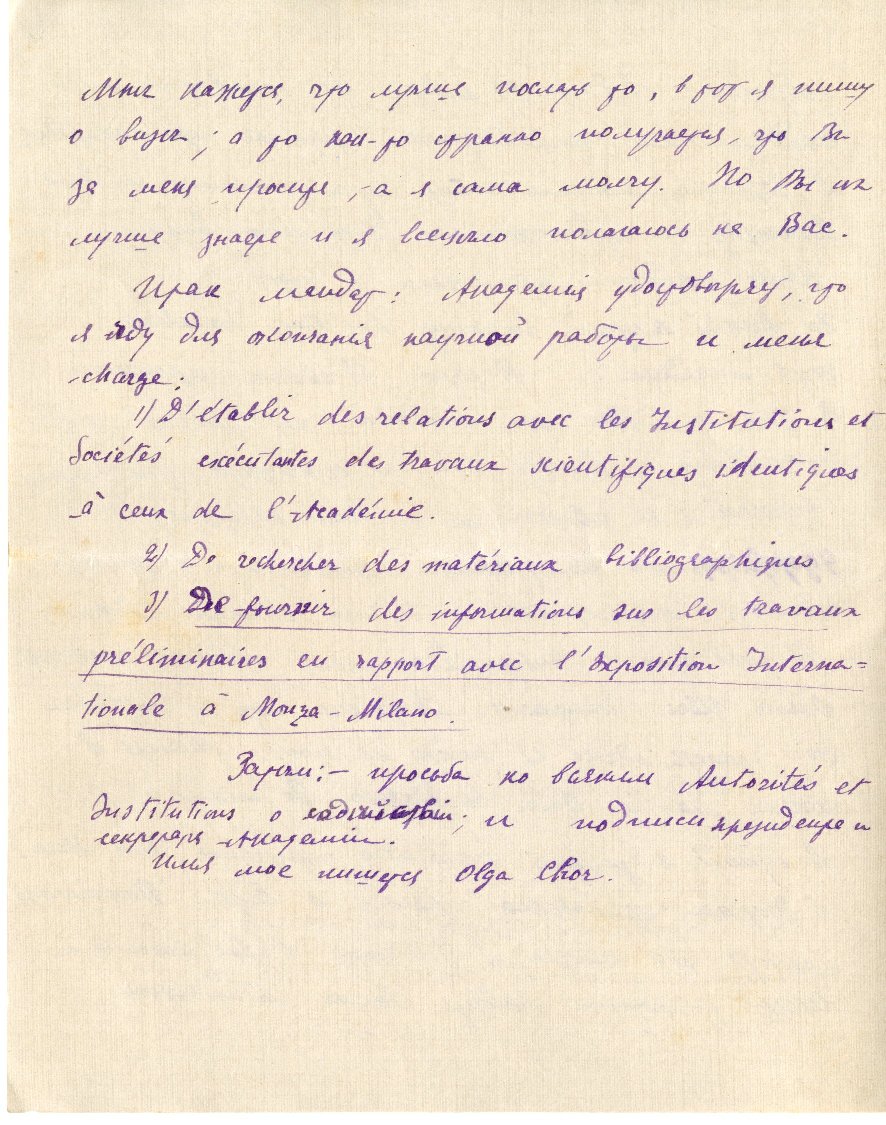 Мне кажется, что лучше послать то, в котор я пишу
о визе; а то как-то странно получается, что Вы
за меня просите, а я сама молчу. Но Вы их
лучше знаете и я всецело полагаюсь на Вас.
Итак мандат: Академия удостоверяет, что
я иду для окончанiя научной работы и меня
charge:
1) D'établir des relations avec les Institutions et
Sociétés exécutantes des travaux scientifiques identiques
à ceux de l'Académie.
2) De rechercher des matériaux bibliographiques
3) De fournir des informations sur les travaux
préliminaires en rapport avec l'Exposition Interna=
tionale à Monza-Milano.
Затем:- просьба ко всяким Autorités et
Institutions о содействии; и подписи президента и
секретаря Академiи.
Имя мое пишется Olga Chor.